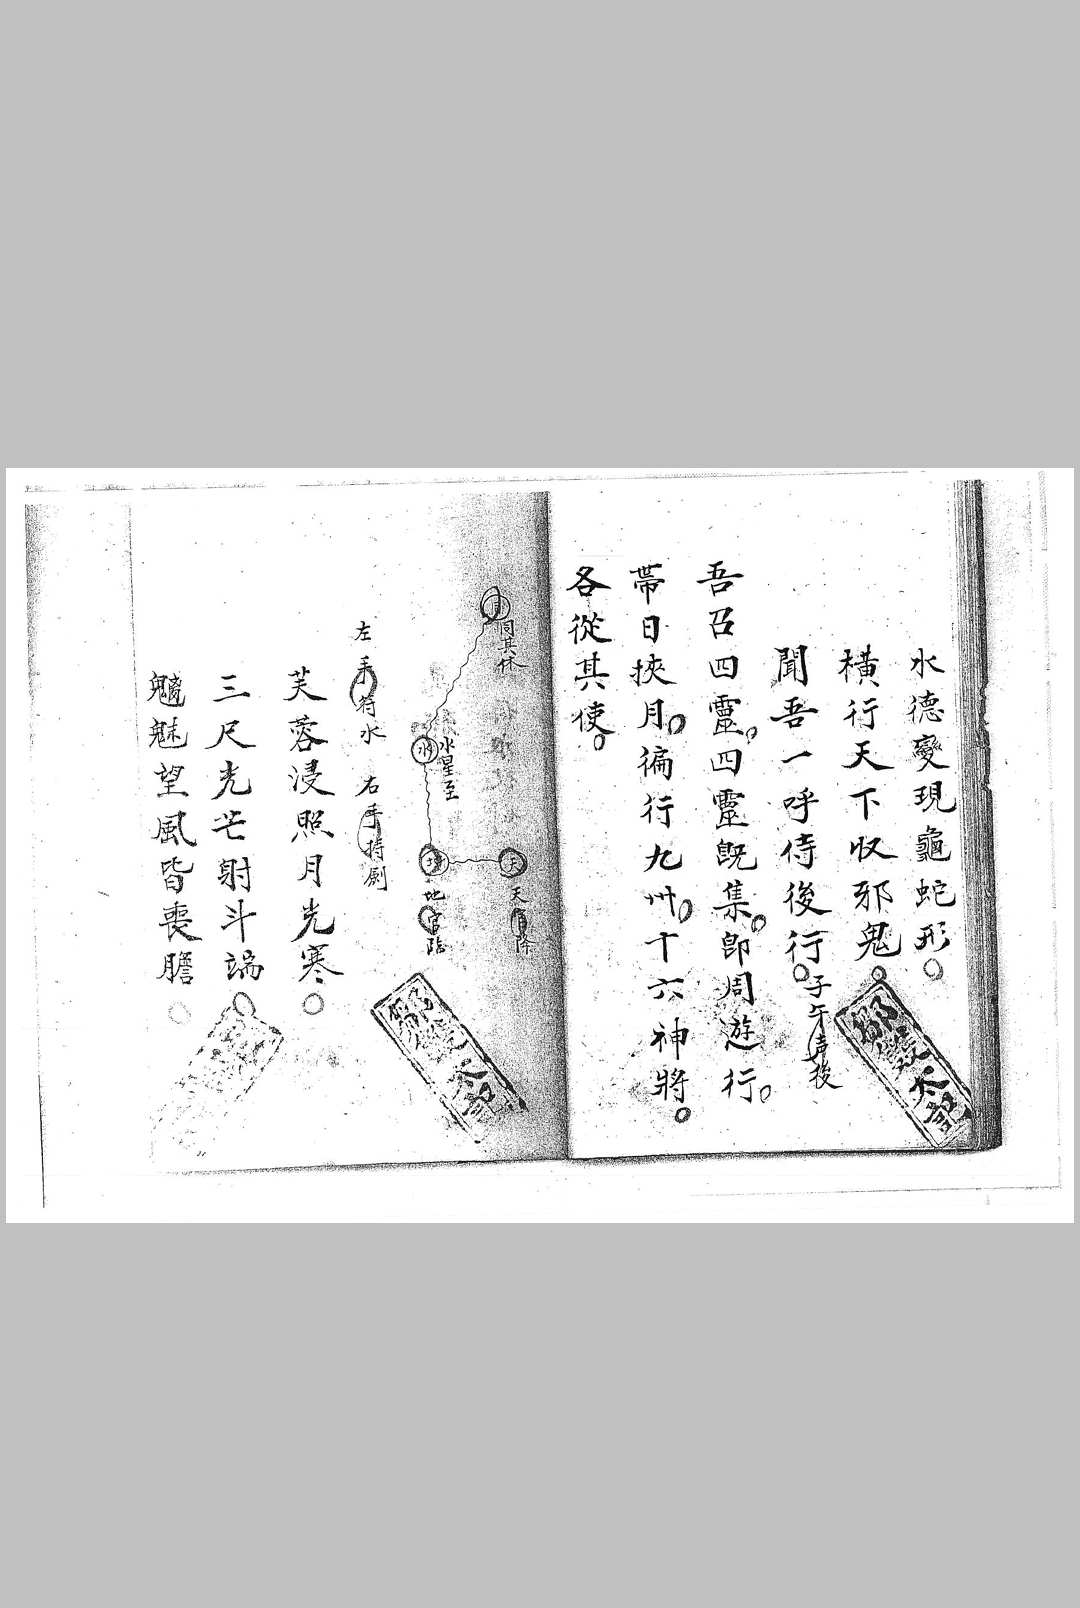 水德變現龜蛇形
橫行天下收邪鬼
聞吾一呼侍後行
子午声後
吾召四靈四靈既集即周遊行
帶日挾月徧行九州十六神將
各從其使
同其休
水
水星至
天
天官降
地官臨
左手符水 右手持劍
芙蓉浸照月光寒
三尺光芒射斗端
魑魅望風皆喪膽